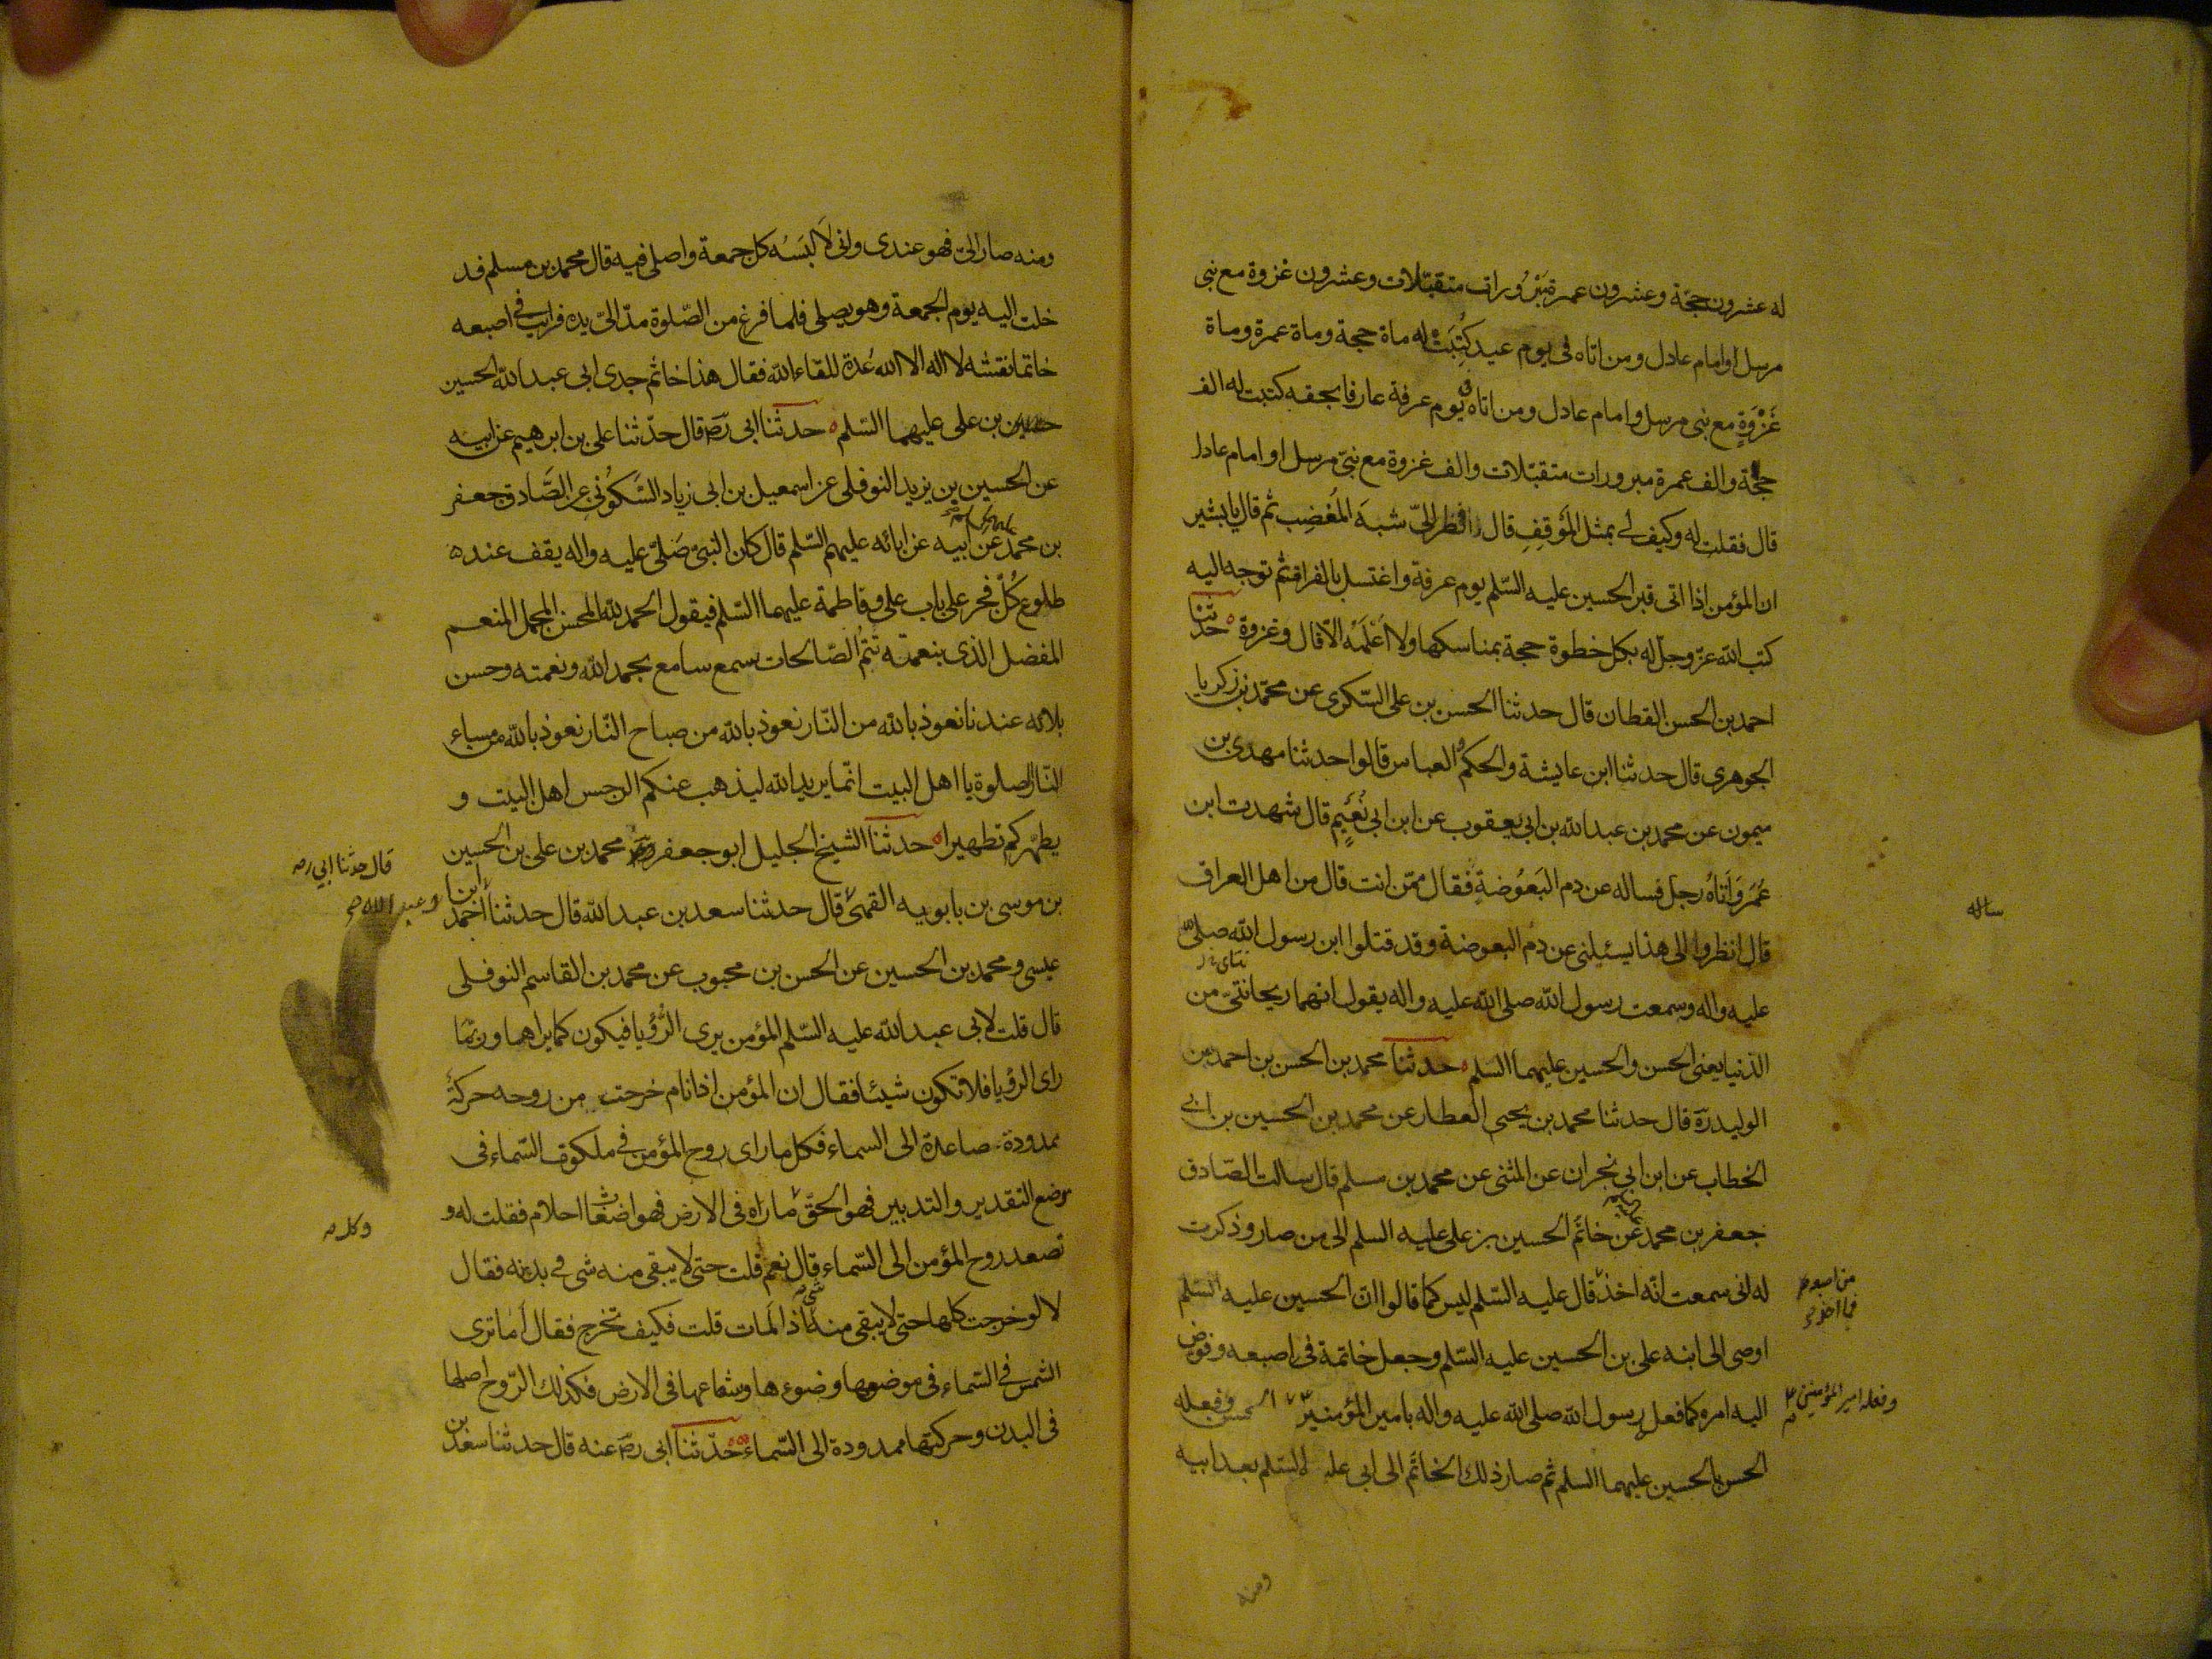 له عشرون حجّة وعشرون عمرة مَبْرُورات متقبّلات وعشرون غزوة مع نبى
مرسل او امام عادل ومن اتاه فى يوم عيد كُتِبَتْ له ماة حجة وماة عمرة وماة
غَزْوَةٍ مع نبى مرسل وامام عادل ومن اتاه فى يوم عرفة عارفا بحقه كتبت له الف
حجّة والف عمرة مبرورات متقبّلات والف غزوة مع نبىّ مرسل او امام عادل
قال فقلت له وكيف لى بمثل المَوْقِفِ قال فنظر الىّ شبهَ المُغْضِب ثم قال يا بشير
ان المؤمن اذا اتى قبر الحسين عليه السّلم يوم عرفة واغتسل بالفرات ثم توجه اليه
كتب الله عزّ وجلّ له بكل خطوة حجة بمناسكها ولا اَعْلَمُه الّا قال وغزوة حدثنا
احمد بن الحسن القطان قال حدثنا الحسن بن على السّكرى عن محمّد بن زكريا
الجوهرى قال حدثنا ابن عايشة والحكم والعباس قالوا حدثنا مهدى بن
ميمون عن محمد بن عبد الله بن ابى يعقوب عن ابن ابى نُعَيمٍ قال شهدت ابن
عُمَرَ وَاَتاهُ رجل فساله عن دم البَعُوضةِ فقال ممّن انت قال من اهل العراق
ساله
قال انظروا الى هذا يسئيلنى عن دم البعوضة وقد قتلوا ابن رسول الله صلى الله
عليه واله وسمعت رسول الله صلى الله عليه واله يقول انهما ريحانتىّ من
الدّنيا يعنى الحسن والحسين عليهما السلم حدثنا محمد بن الحسن بن احمد بن
الوليد ره قال حدثنا محمد بن يحيى العطار عن محمد بن الحسين بن ابى
الخطاب عن ابن ابى نجران عن المثنى عن محمد بن مسلم قال سالت الصّادق
جعفر بن محمد عن خاتَم الحسين بن على عليه السلم الى من صار وذكرت
له انى سمعت انّه اخذ قال عليه السّلم ليس كما قالوا ان الحسين عليه السّلم
من اصبعه
فيما اخذ
اوصى الى ابنه على بن الحسين عليه السّلم وجعل خاتمة فى اصبعه وفوض
اليه امره كما فعل رسول الله صلى الله عليه واله بامير المؤمنين وفعله
وفعله امير المؤمنين
الحسن بالحسين عليهما السلم ثم صار ذلك الخاتَم الى ابى عليه السّلم بعد ابيه
ومنه
ومنه صار الىّ فهو عندى وانى لَالبَسُه كل جمعة واصلى فيه قال محمد بن مسلم فد
خلت اليه يوم الجمعة وهو يصلى فلما فرغ من الصّلوة مدّ الىّ يده فرايت فى اصبعه
خاتما نقشه لا اله الا الله عُدة للقاء الله فقال هذا خاتم جدى ابى عبد الله الحسين
بن على عليهما السّلم حدثنا ابى رضَ قال حدّثنا على بن ابرهيم عن ابيه
عن الحسين بن يزيد النوفلى عن اسمعيل بن ابى زياد السَّكونى عن الصَّادق جعفر
بن محمد عن ابيه عن ابائه عليهم السّلم قال كان النبىّ صَلّى عليه واله يقف عنده
طلوع كُلّ فجر على باب على وفاطمة عليهما السّلم فيقول الحمد لله المحسن المجمل المنعم
المفضل الذى بنعمته تتمُ الصّالحات سمع سامع بحمد الله ونعمته وحسن
بلائه عندنا نعوذ بالله من النّار نعوذ بالله من صباح النّار نعوذ بالله من مساء
النّار الصلوة يا اهل البيت انّما يريد الله ليذهب عنكم الرجس اهل البيت و
يطهّركم تطهيرا حدثنا الشيخ الجليل ابو جعفر محمد بن على بن الحسين
قال حدثنا ابى ره
بن موسى بن بابويه القمىّ قال حدثنا سعد بن عبد الله قال حدثنا احمد
ابنا وعبد الله
عيسى ومحمد بن الحسين عن الحسن بن محبوب عن محمد بن القاسم النوفلى
قال قلت لابى عبد الله عليه السّلم المؤمن يرى الرُّؤيا فيكون كما يراهما وربّما
راى الرؤيا فلا تكون شيئا فقال ان المؤمن اذا نام خرجت من روحه حركةٌ
ممدودة صاعدة الى السماء فكل ما راى روح المؤمن فى ملكوت السّماء فى
موضع التقدير والتدبير فهو الحقّ ما راه فى الارض فهو اضغاث احلام فقلت له و
وكل
تصعد روح المؤمن الى السّماء قال نعم قلت حتى لا يبقى منه شى فى بدنه فقال
لا لو خرجت كلها حتى لا يبقى منه شى اذا لَمات قلت فكيف تخرج فقال اَما ترى
الشمس فى السّماء فى موضعها وضوءها وشعاعها فى الارض فكذلك الرّوح اصلها
فى البدن وحركتها ممدودة الى السّماء حدّثنا ابى رضَ عنه قال حدثنا سعد بن